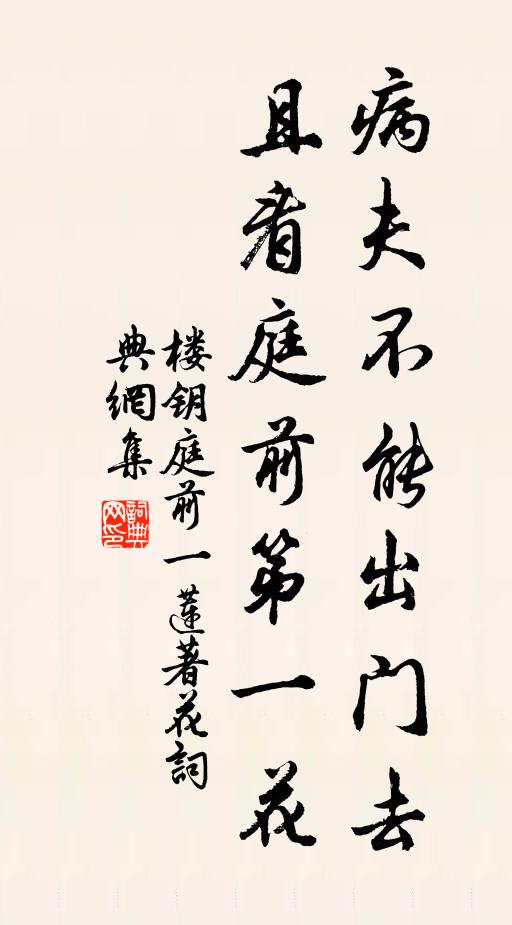 病夫不能出门去
且看庭前第一花
楼钥庭前一莲著花詞
典網集
詞典
网印